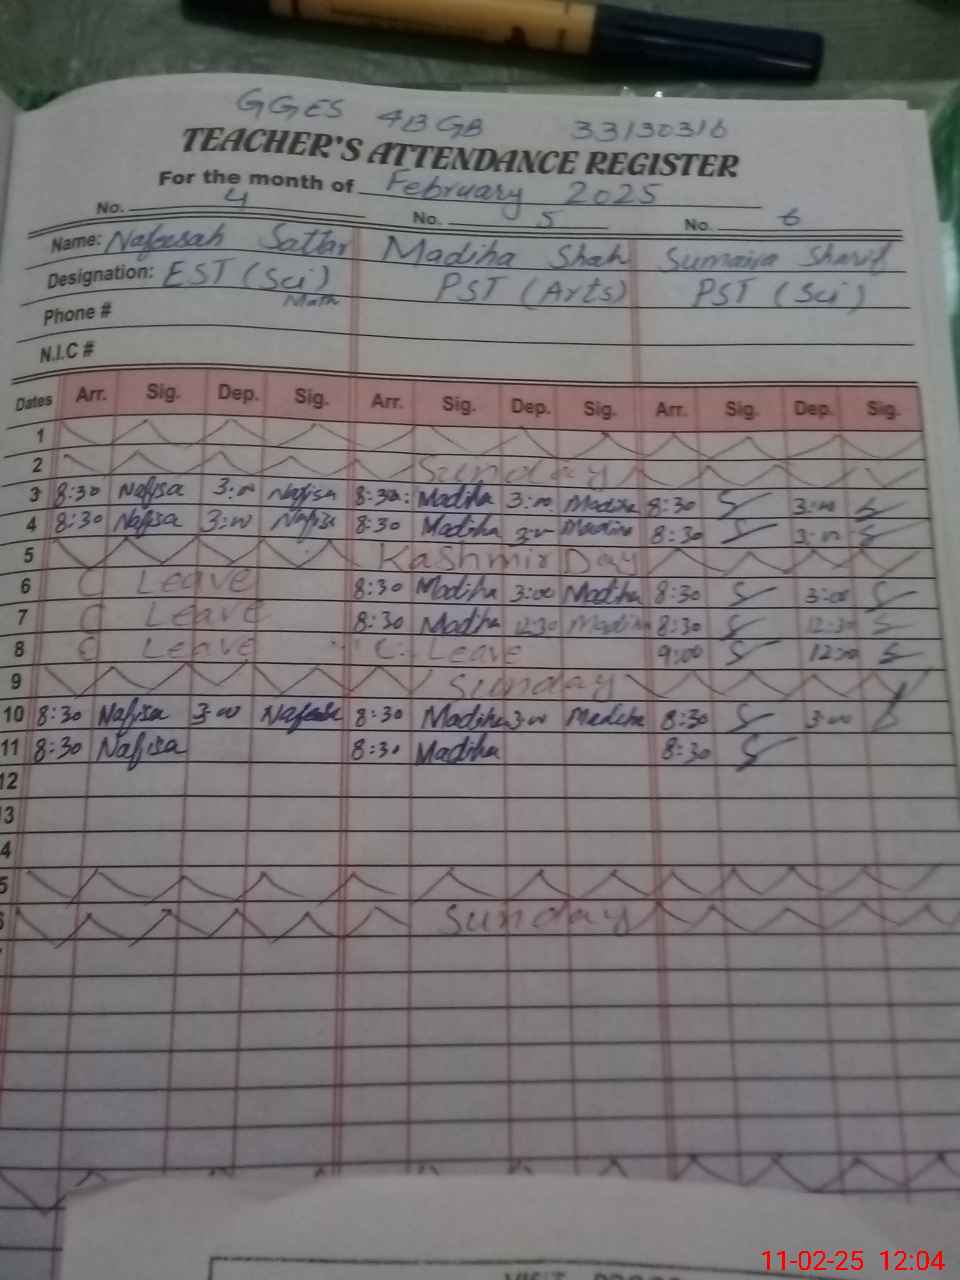 GGES 4B GB 33130316
TEACHER'S ATTENDANCE REGISTER
For the month of February 2025
No. 4 No. 5 No. 6
Name: Nafeesah Sattar Madiha Shah Sumaira Sharif
Designation: EST (Sci) PST (Arts) PST (Sci)
Math
Phone #
N.I.C #
Dates Arr. Sig. Dep. Sig. Arr. Sig. Dep. Sig. Arr. Sig. Dep. Sig.
1
2 Sunday
3 8:30 Nafisa 3:00 Nafisa 8:30 Madiha 3:00 Madiha 8:30 3:00
4 8:30 Nafisa 3:00 Nafisa 8:30 Madiha 3:00 Madiha 8:30 3:00
5 Kashmir Day
6 C Leave 8:30 Madiha 3:00 Madiha 8:30 3:00
7 C Leave 8:30 Madiha 12:30 Madiha 8:30 12:30
8 C Leave C. Leave 9:00 12:00
9 Sunday
10 8:30 Nafisa 3:00 Nafisa 8:30 Madiha 3:00 Madiha 8:30 3:00
11 8:30 Nafisa 8:30 Madiha 8:30
12
3
4
5
Sunday
11-02-25 12:04